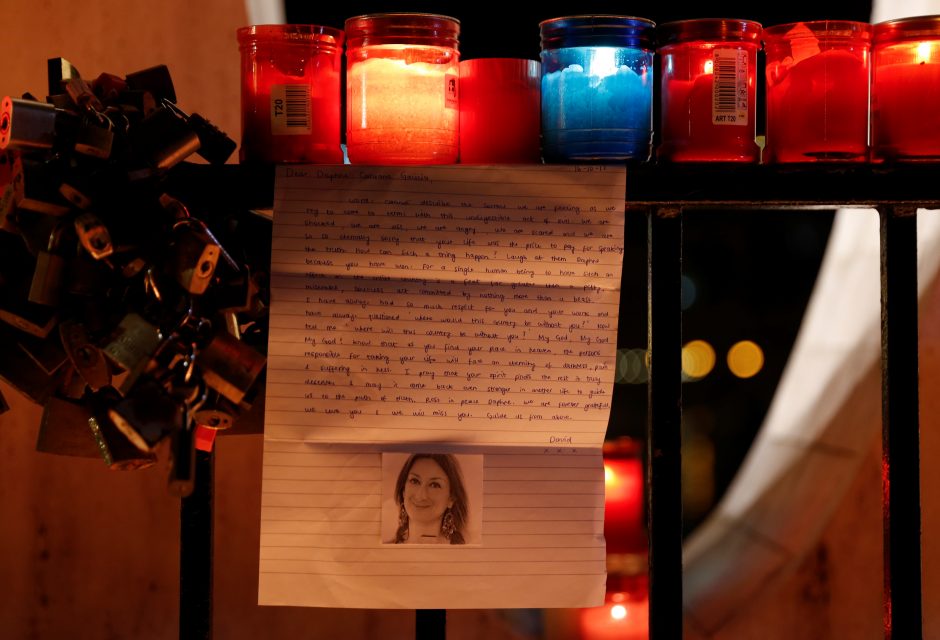 T20
ART T20
16-10-17
Dear Daphne Caruana Galizia,
words cannot describe the sorrow we are feeling as we
try to come to terms with this act of evil. we are
shocked, we are we are angry, we are scared and we are
so so eternally sorry that your life was the price to pay for speaking
the truth. How can such a thing happen? Laugh at them Daphne
because you have won. For a single human being to have such an
on the entire is a feat far greater than a
act committed by nothing more than a
I have always had so much respect for you and your work and
have always questioned "where would this country be without you?" Now
tell me "where will this country be without you?" My God My God
My God! I know that as you find your place in heaven the persons
responsible for taking your life will face an eternity of darkness, pain
& suffering in hell. I pray that your spirit finds the rest it truly
deserves & may it come back even stronger in another life to guide
us to the path of truth. Rest in peace Daphne. we are forever grateful,
we love you & we will miss you. Guide us from above.
David
x x x